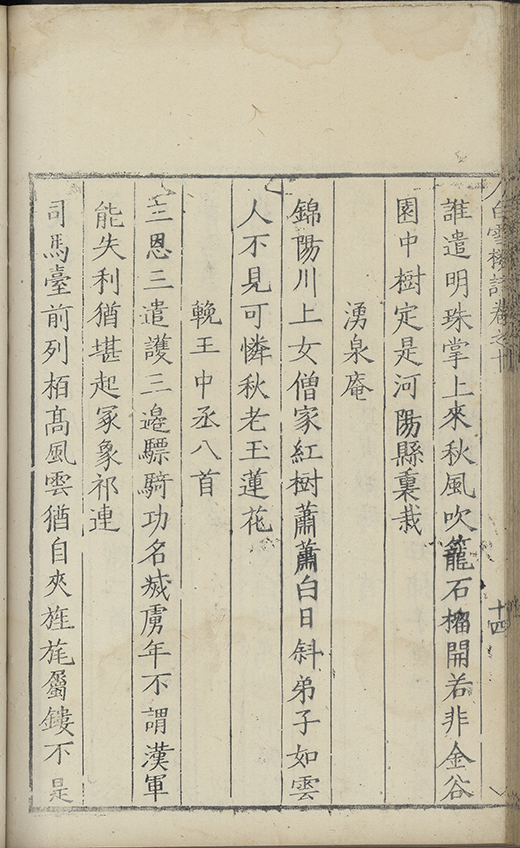 白雲樓詩卷之十
十四
誰遣明珠掌上來秋風吹籠石榴開若非金谷
園中樹定是河陽縣裏栽
湧泉庵
錦陽川上女僧家紅樹蕭蕭白日斜弟子如雲
人不見可憐秋老玉蓮花
輓王中丞八首
主恩三遣護三邊驃騎功名烕虜年不謂漢軍
能失利猶堪起冢象祁連
司馬臺前列栢髙風雲猶自夾旌旄屬鏤不是